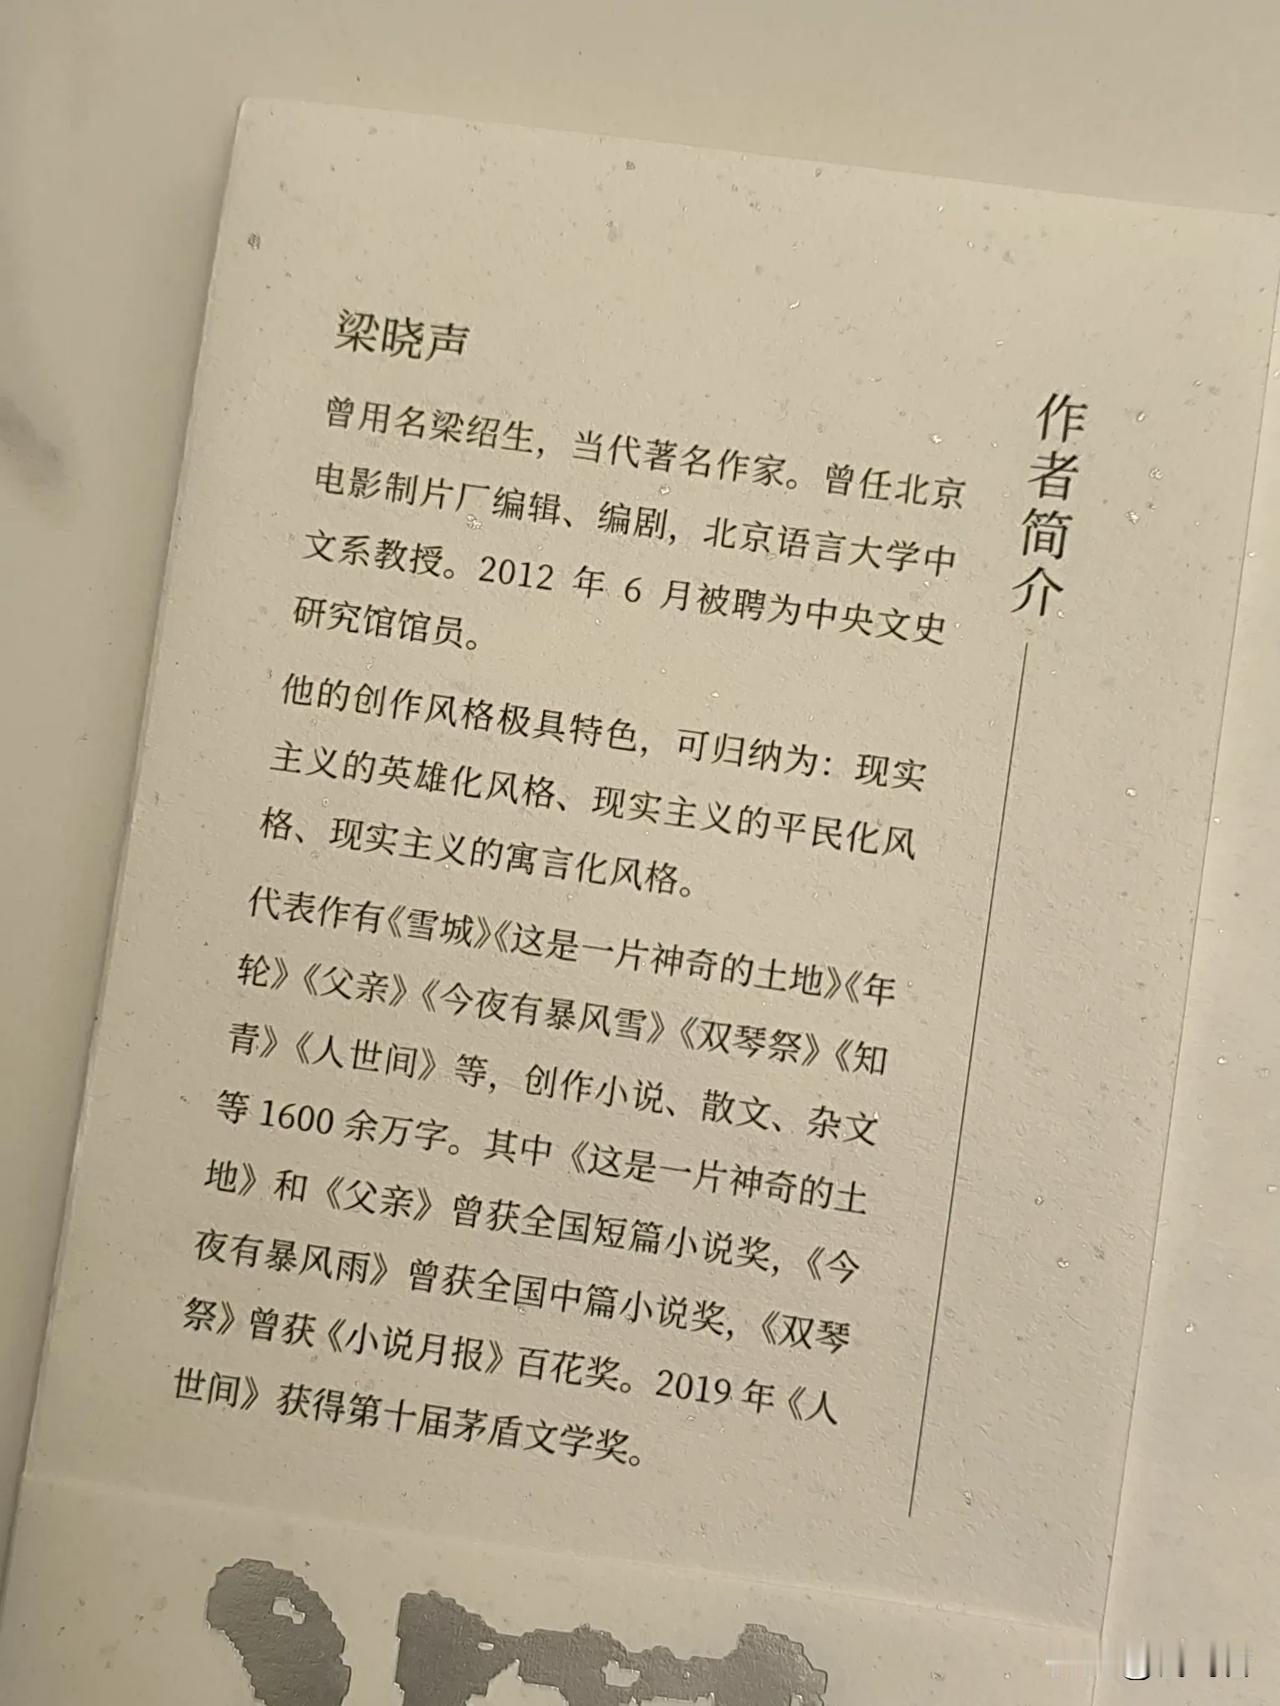 作者简介
梁晓声
曾用名梁绍生，当代著名作家。曾任北京
电影制片厂编辑、编剧，北京语言大学中
文系教授。2012 年 6 月被聘为中央文史
研究馆馆员。
他的创作风格极具特色，可归纳为：现实
主义的英雄化风格、现实主义的平民化风
格、现实主义的寓言化风格。
代表作有《雪城》《这是一片神奇的土地》《年
轮》《父亲》《今夜有暴风雪》《双琴祭》《知
青》《人世间》等，创作小说、散文、杂文
等 1600 余万字。其中《这是一片神奇的土
地》和《父亲》曾获全国短篇小说奖，《今
夜有暴风雨》曾获全国中篇小说奖，《双琴
祭》曾获《小说月报》百花奖。2019 年《人
世间》获得第十届茅盾文学奖。